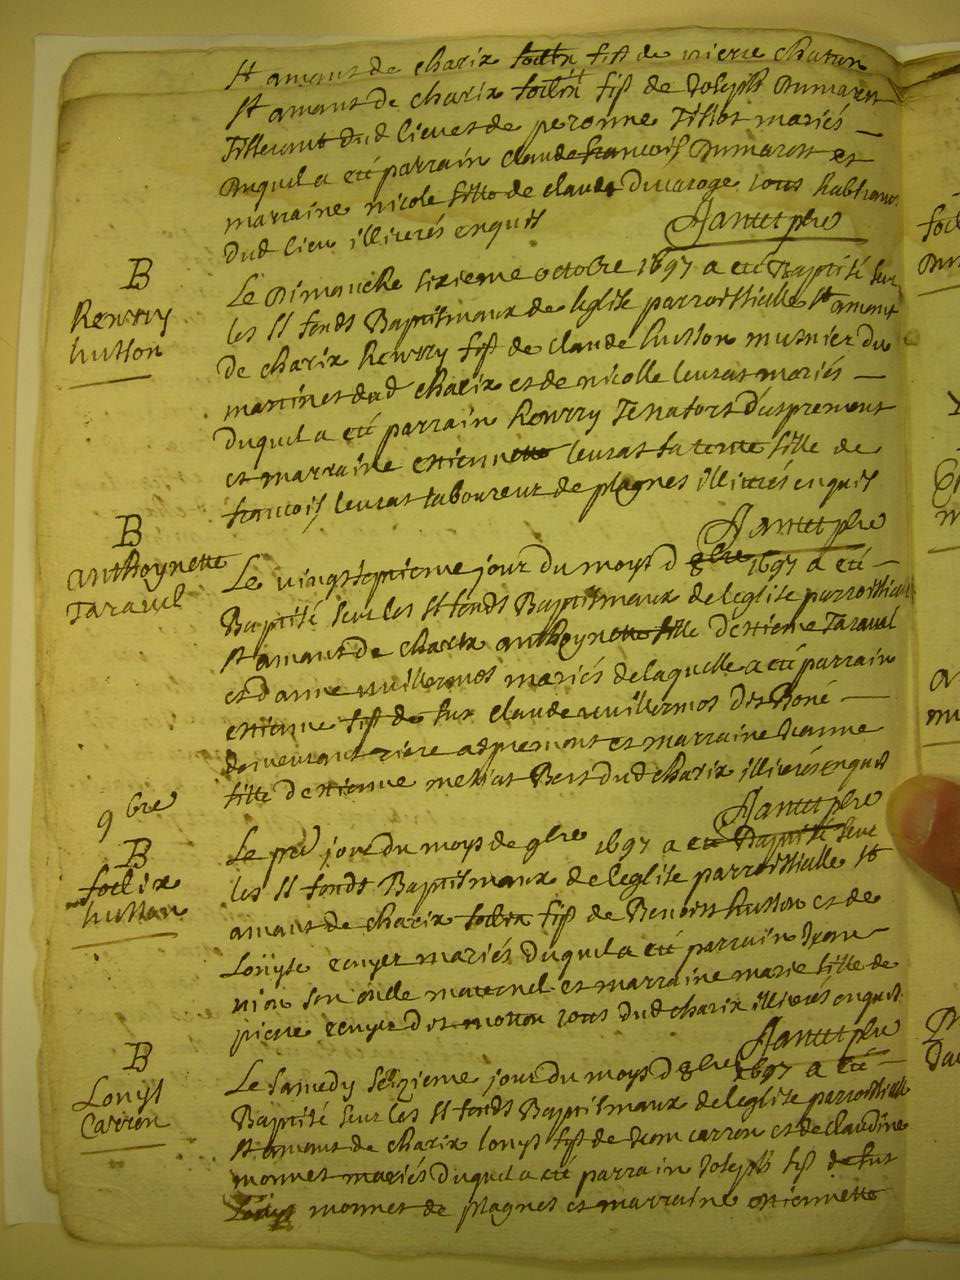 St amant de charix foelix fils de pierre chatron
St amant de charix foelix fils de Joseph Dumarest
Tisserant dud lieu et de peronne Tissot mariés
Duquel a eté parrain claude francois Dumarest et
marraine nicole fille de claude Ducaroge tous habitans
dud lieu illiterés enquis
Jantet pbre
B
Henrry
husson
Le Dimanche sixieme octobre 1697 a eté Baptisé sur
les St fonds Baptismaux de leglise parroissialle St amant
de charix Henrry fils de claude husson musnier du
martinet dud charix et de nicolle leurat mariés
Duquel a eté parrain Henrry Tenators d'aspremont
et marraine estiennette leurat sa tente fille de
francois leurat laboureur de plagnes illiterés enquis
Jantet pbre
B
anthoynette
Taravel
Le vingtseptieme jour du moys d 8bre 1697 a eté
Baptisé sur les St fonds Baptismaux de leglise parroissialle
St amant de charix anthoynette fille d'estienne Taravel
et d'anne vuillermos mariés de laquelle a eté parrain
estienne fils de fut claude vuillermos dit Boné
demeurant riere aspremont et marraine Jeanne
fille d'estienne mermet Bert dud charix illiterés enquis
Jantet pbre
9bre
B
foelix
husson
Le pre jour du moys de 9bre 1697 a eté Baptisé sur
les St fonds Baptismaux de leglise parroissialle St
amant de charix foelix fils de Benoist husson et de
Louyse ronyer mariés Duquel a eté parrain
son oncle maternel et marraine marie fille de
pierre ronyer dit motton tous dud charix illiterés enquis
Jantet pbre
B
Louys
Carron
Le samedy seizieme jour du moys d 9bre 1697 a eté
Baptisé sur les St fonds Baptismaux de leglise parroissialle
St amant de charix louys fils de Jean carron et de claudine
monnet mariés Duquel a eté parrain Joseph fils de fut
Louys monnet de plagnes et marraine estiennette